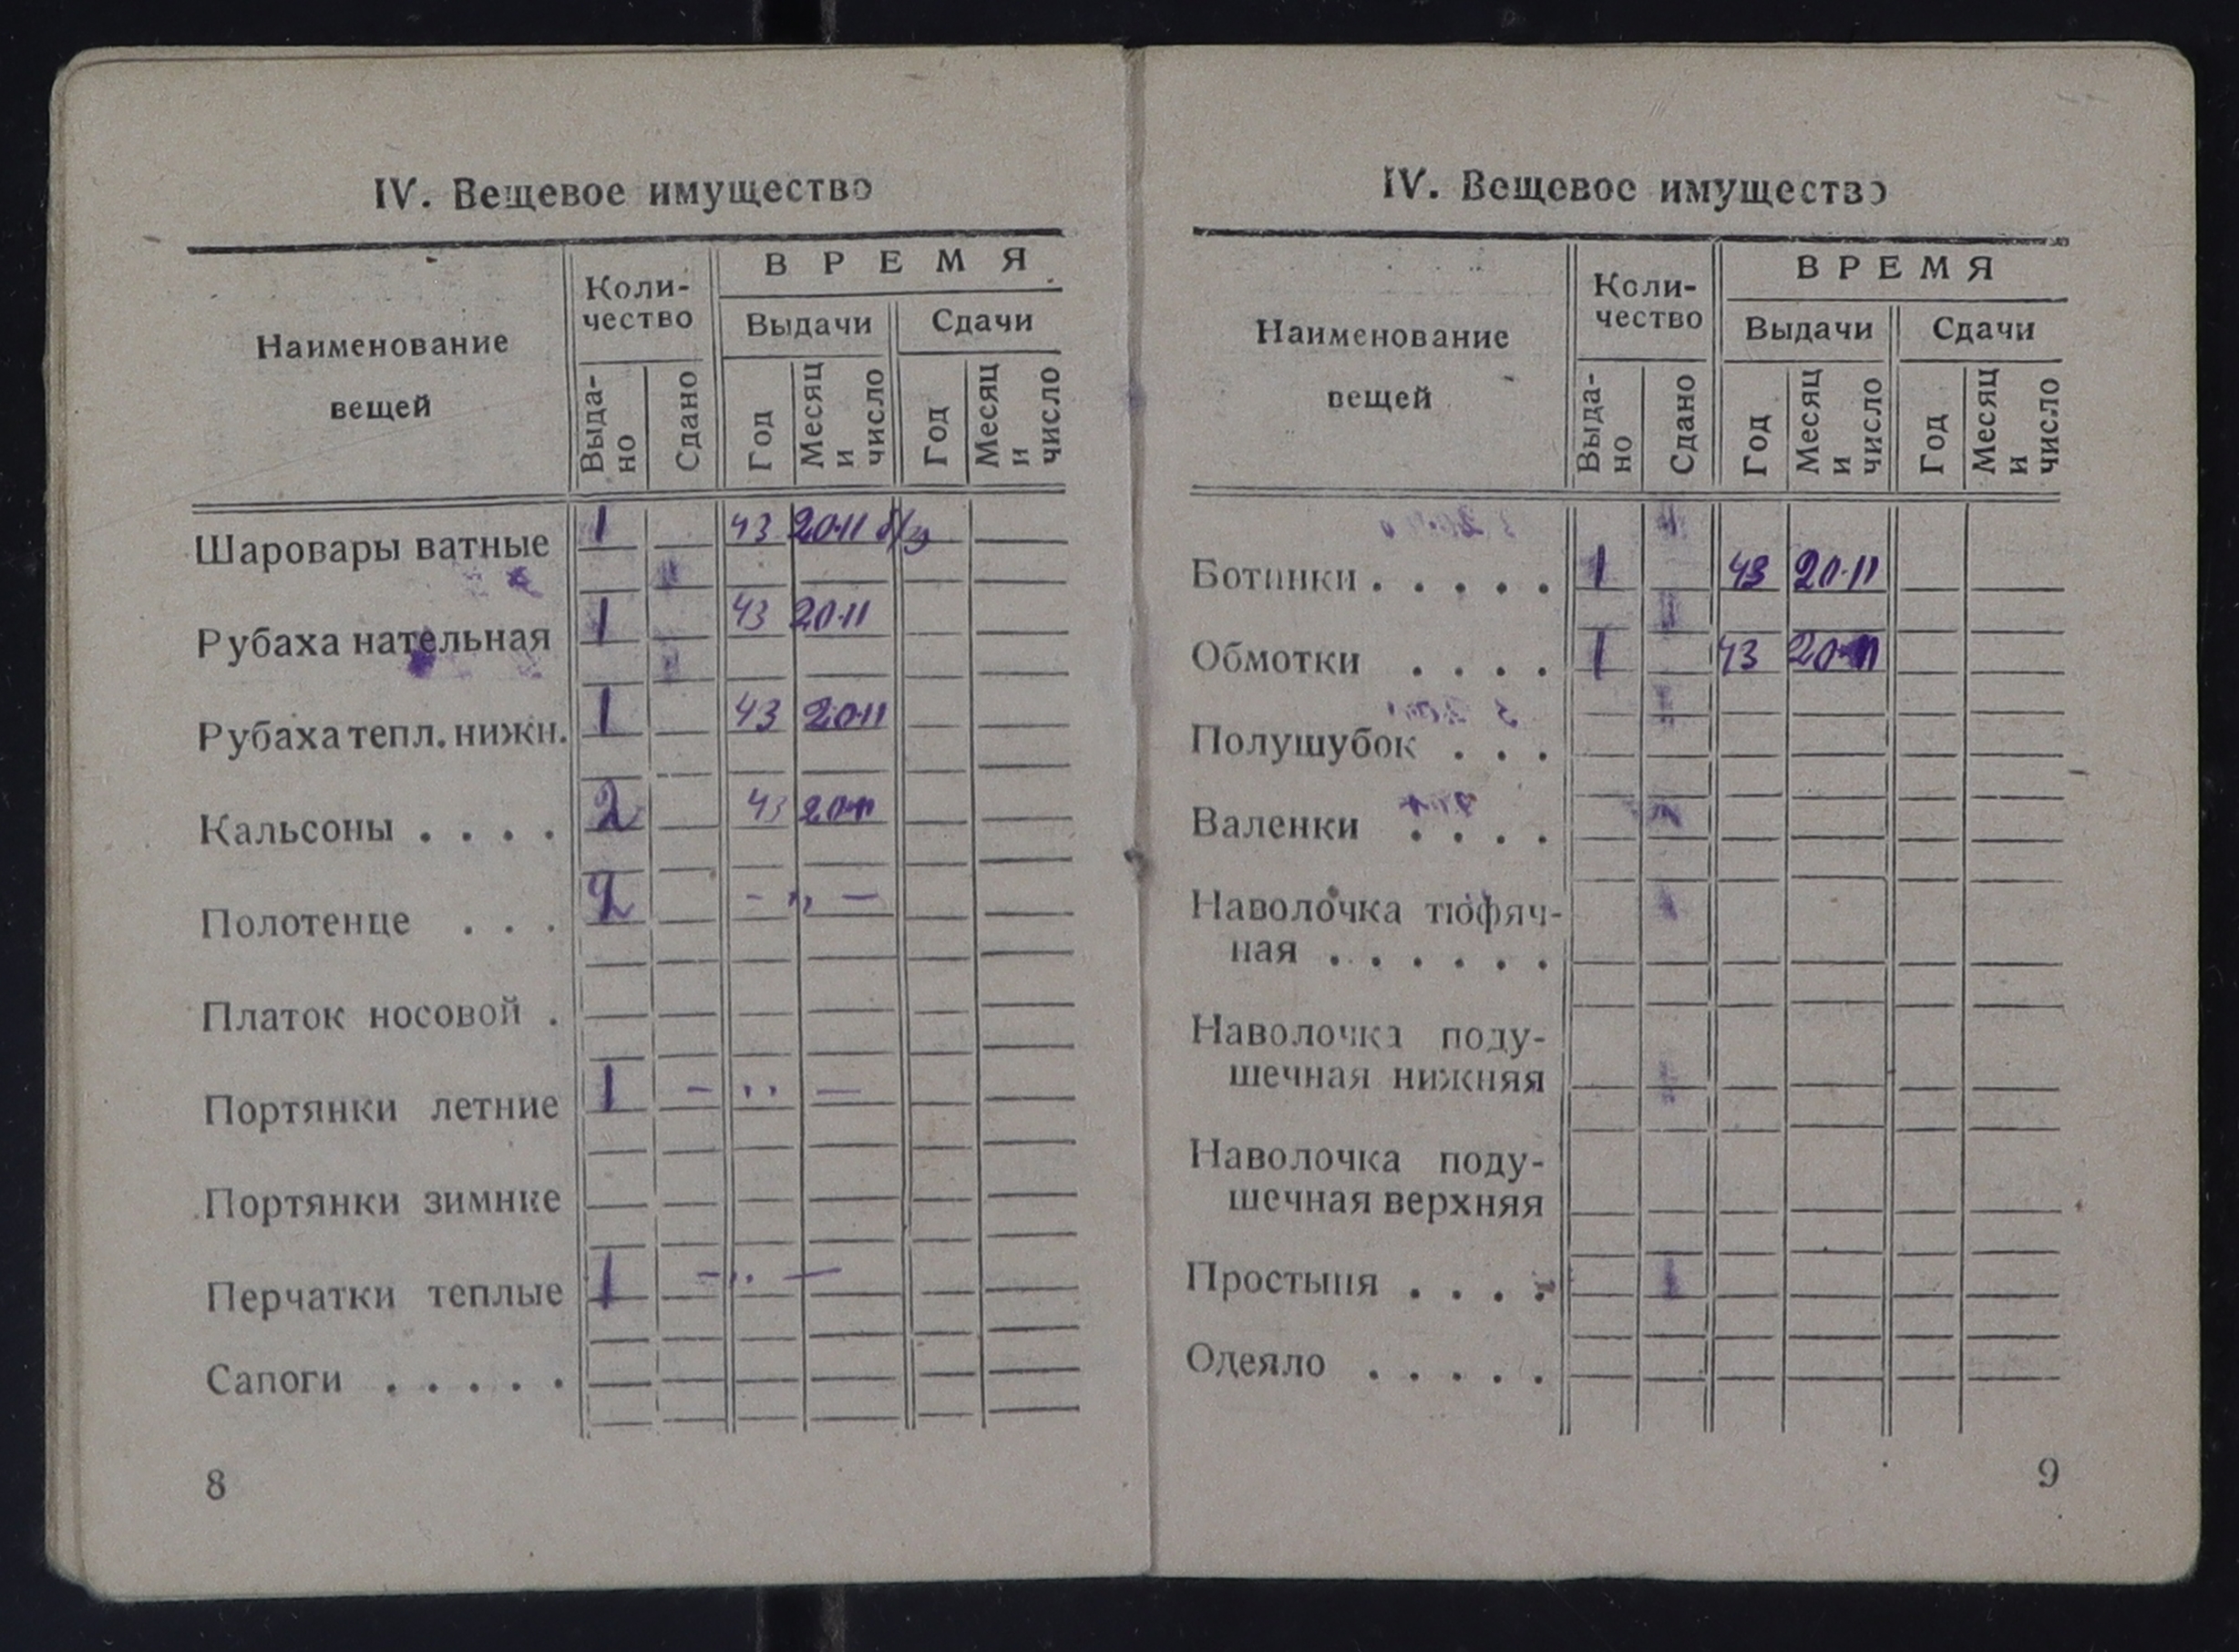 IV. Вещевое имущество
Наименование вещей
Количество
ВРЕМЯ
Выдачи
Сдачи
Выдано
Сдано
Год
Месяц и число
Год
Месяц и число
Шаровары ватные 1 43 20.11
Рубаха нательная 1 43 20.11
Рубаха тепл. нижн. 1 43 20.11
Кальсоны . . . . 2 43 20.11
Полотенце . . . 2 - " -
Платок носовой .
Портянки летние 1 - " -
Портянки зимние
Перчатки теплые 1 - " -
Сапоги . . . . .
8
IV. Вещевое имущество
Наименование вещей
Количество
ВРЕМЯ
Выдачи
Сдачи
Выдано
Сдано
Год
Месяц и число
Год
Месяц и число
Ботинки . . . . . 1 43 20.11
Обмотки . . . . 1 43 20.11
Полушубок . . .
Валенки . . . .
Наволочка тюфяч-
ная . . . . . .
Наволочка поду-
шечная нижняя
Наволочка поду-
шечная верхняя
Простыня . . . .
Одеяло . . . . .
9